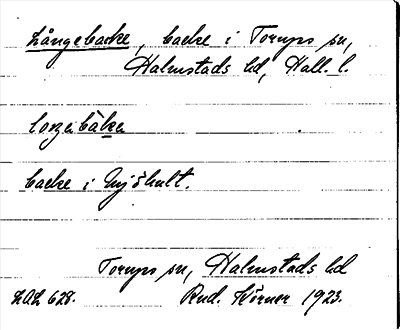 Långebacke, backe i Torups sn,
Halmstads hd, Hall. l.
backe i Nyhult.
Torups sn, Halmstads hd
LAL 628. Rud. Körner 1923.